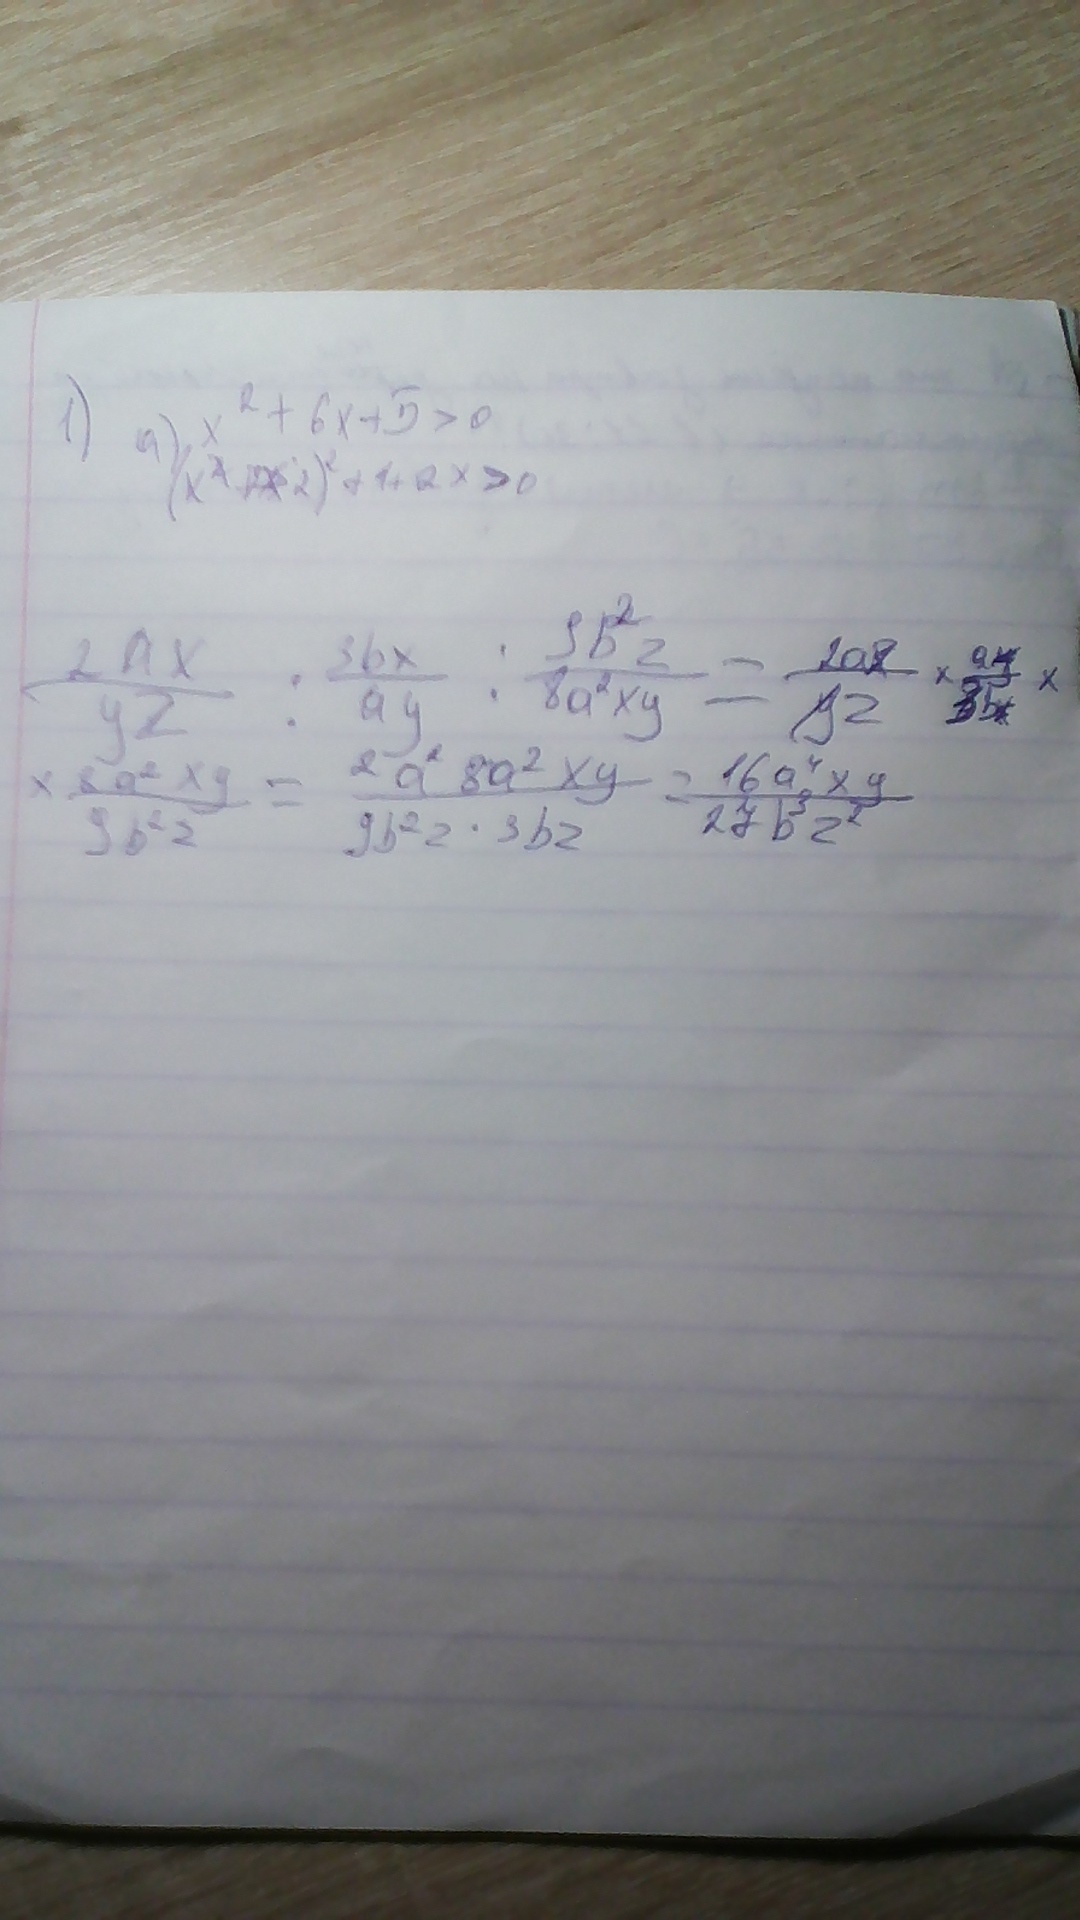 1)
а) x² + 6x + 5 > 0
(x + 2)² + 1 + 2x > 0
2ax/yz : 3bx/ay : 9b²z/8a²xy = 2ax/yz × ay/3bx ×
× 8a²xy/9b²z = 2a² 8a²xy/9b²z · 3bz = 16a⁴xy/27b³z²